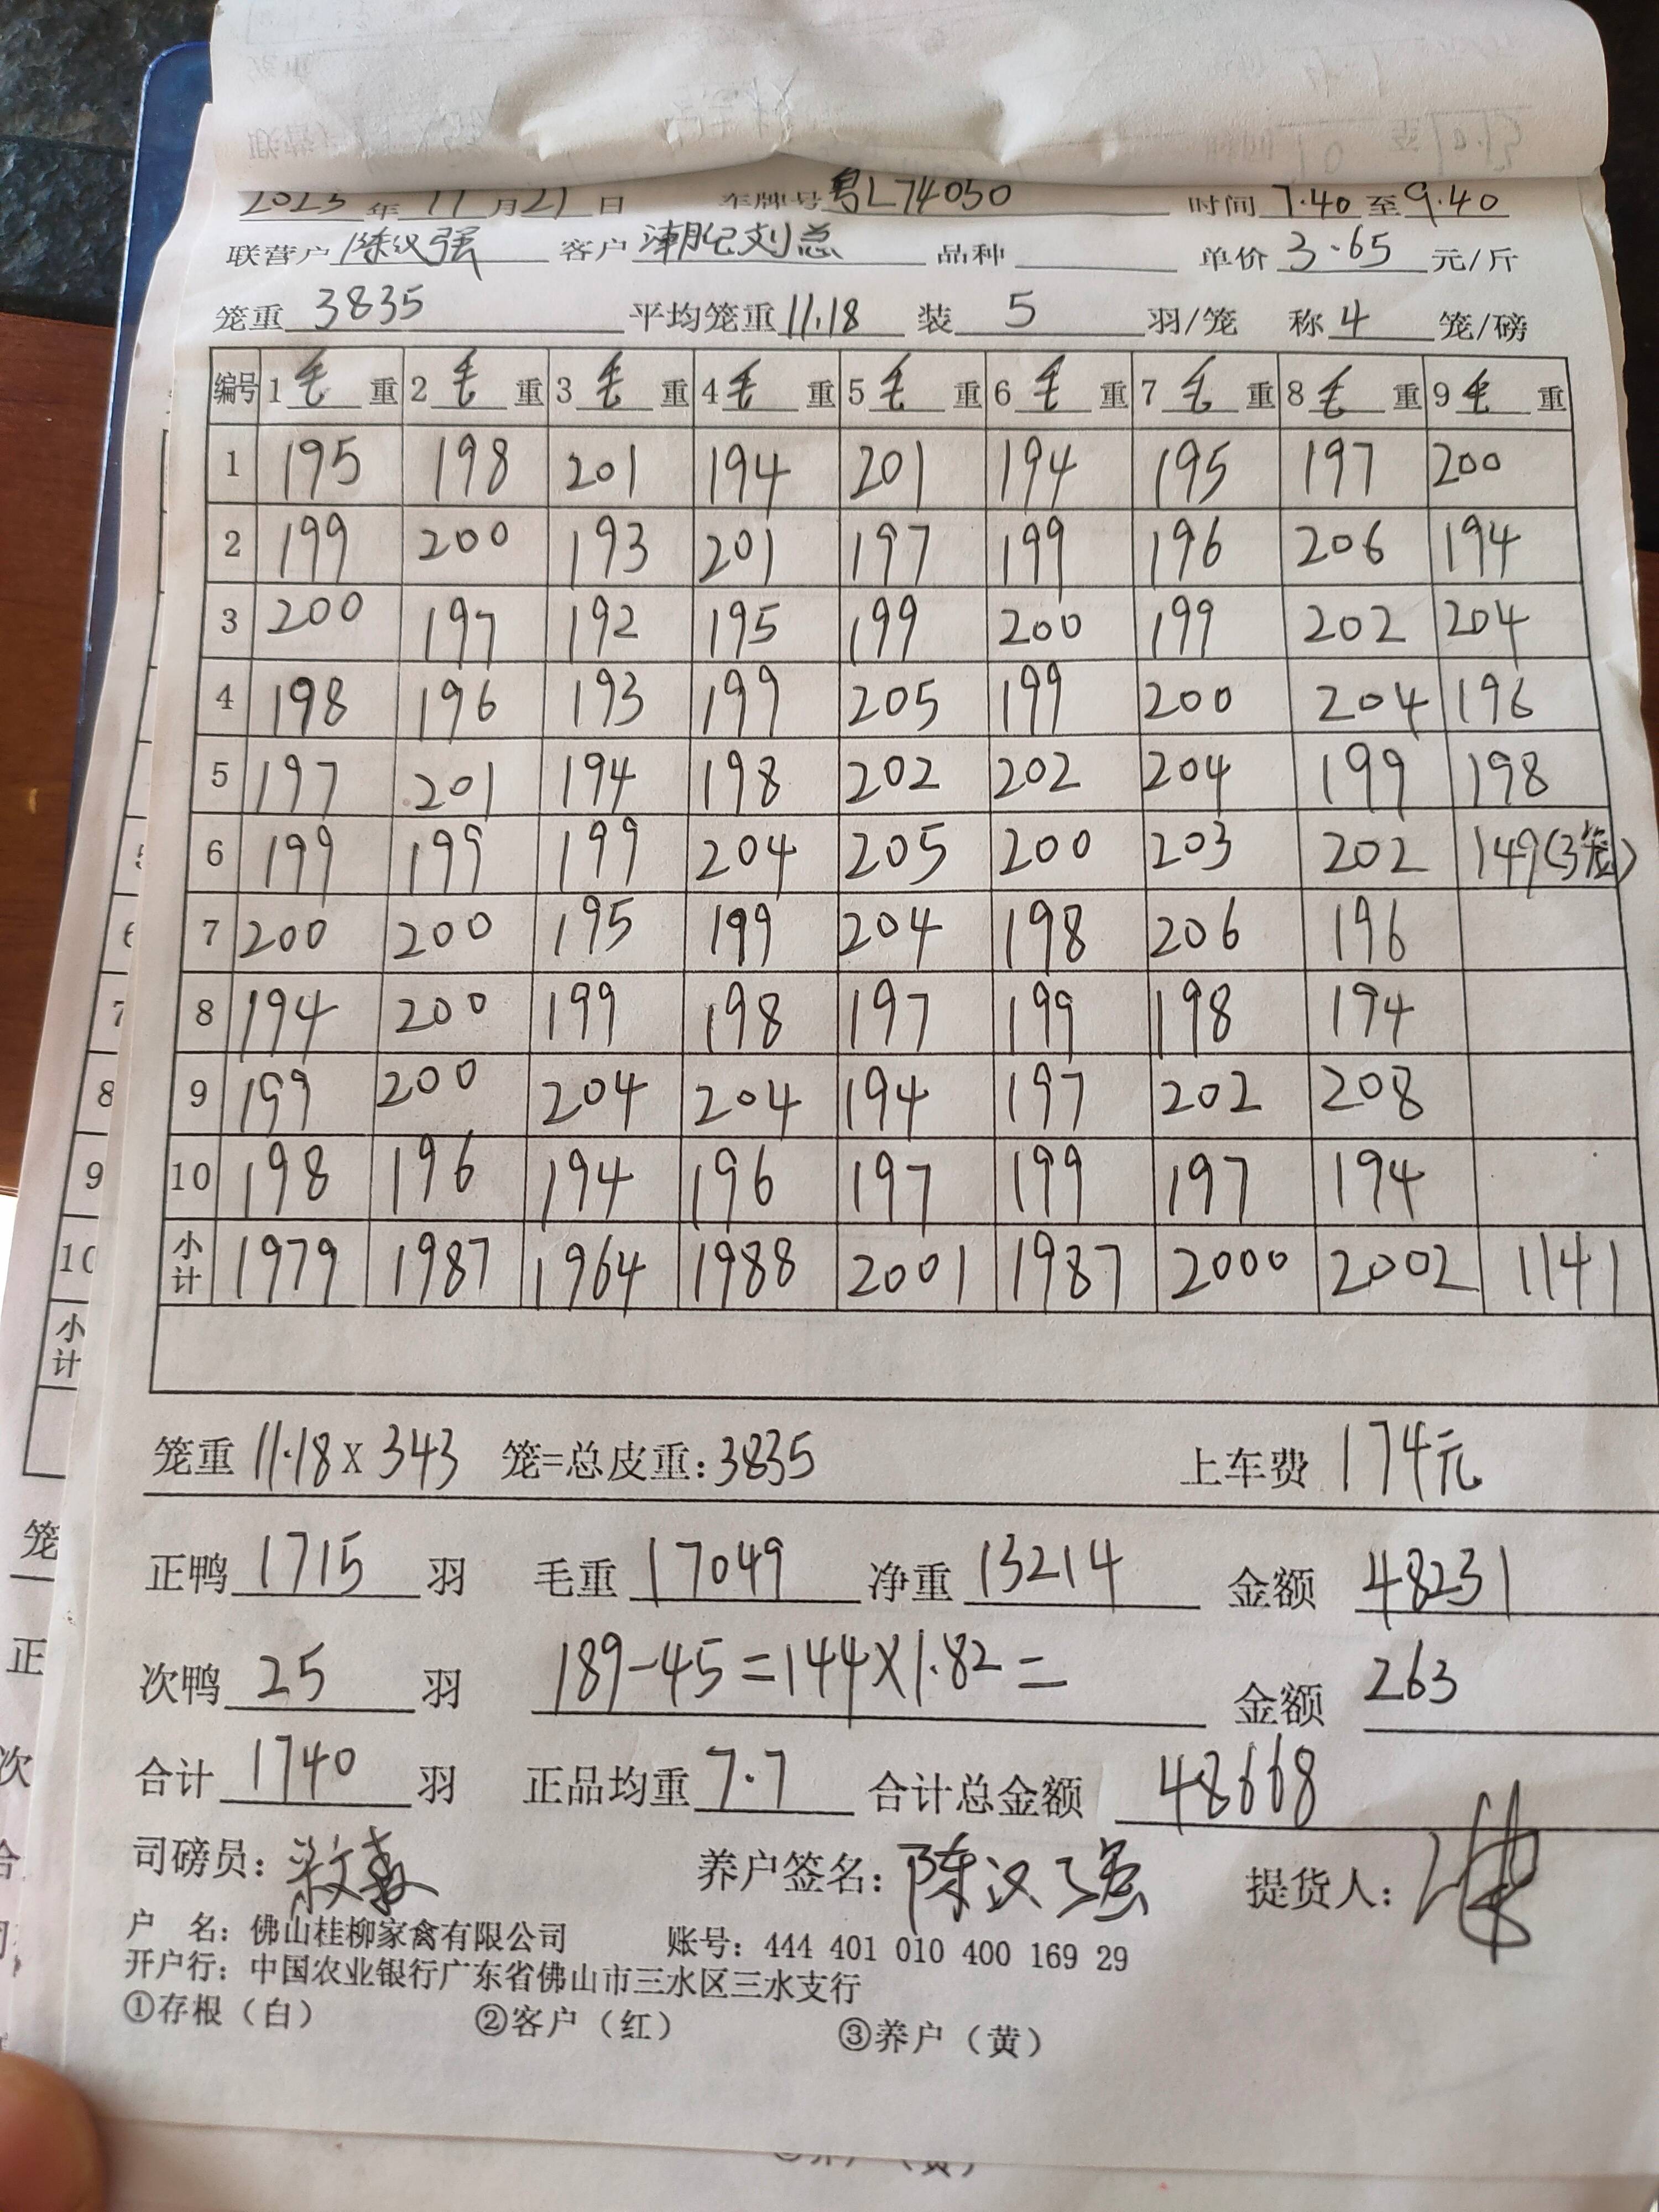 2023年11月21日 车牌号粤L74050 时间7.40至9.40
联营户陈汉强 客户潮记刘总 品种 单价3.65元/斤
笼重3835 平均笼重11.18 装5羽/笼 称4笼/磅
编号 1毛重 2毛重 3毛重 4毛重 5毛重 6毛重 7毛重 8毛重 9毛重
1 195 198 201 194 201 194 195 197 200
2 199 200 193 201 197 199 196 206 194
3 200 197 192 195 199 200 199 202 204
4 198 196 193 199 205 199 200 204 196
5 197 201 194 198 202 202 204 199 198
6 199 199 199 204 205 200 203 202 149(3笼)
7 200 200 195 199 204 198 206 196
8 194 200 199 198 197 199 198 194
9 199 200 204 204 194 197 202 208
10 198 196 194 196 197 199 197 194
小计 1979 1987 1964 1988 2001 1987 2000 2002 1141
笼重11.18X343 笼=总皮重:3835 上车费174元
正鸭1715羽 毛重17049 净重13214 金额48231
次鸭25羽 189-45=144X1.82= 金额263
合计1740羽 正品均重7.7 合计总金额48668
司磅员: 养户签名:陈汉强 提货人:
户 名:佛山桂柳家禽有限公司 账号:444 401 010 400 169 29
开户行:中国农业银行广东省佛山市三水区三水支行
①存根(白) ②客户(红) ③养户(黄)